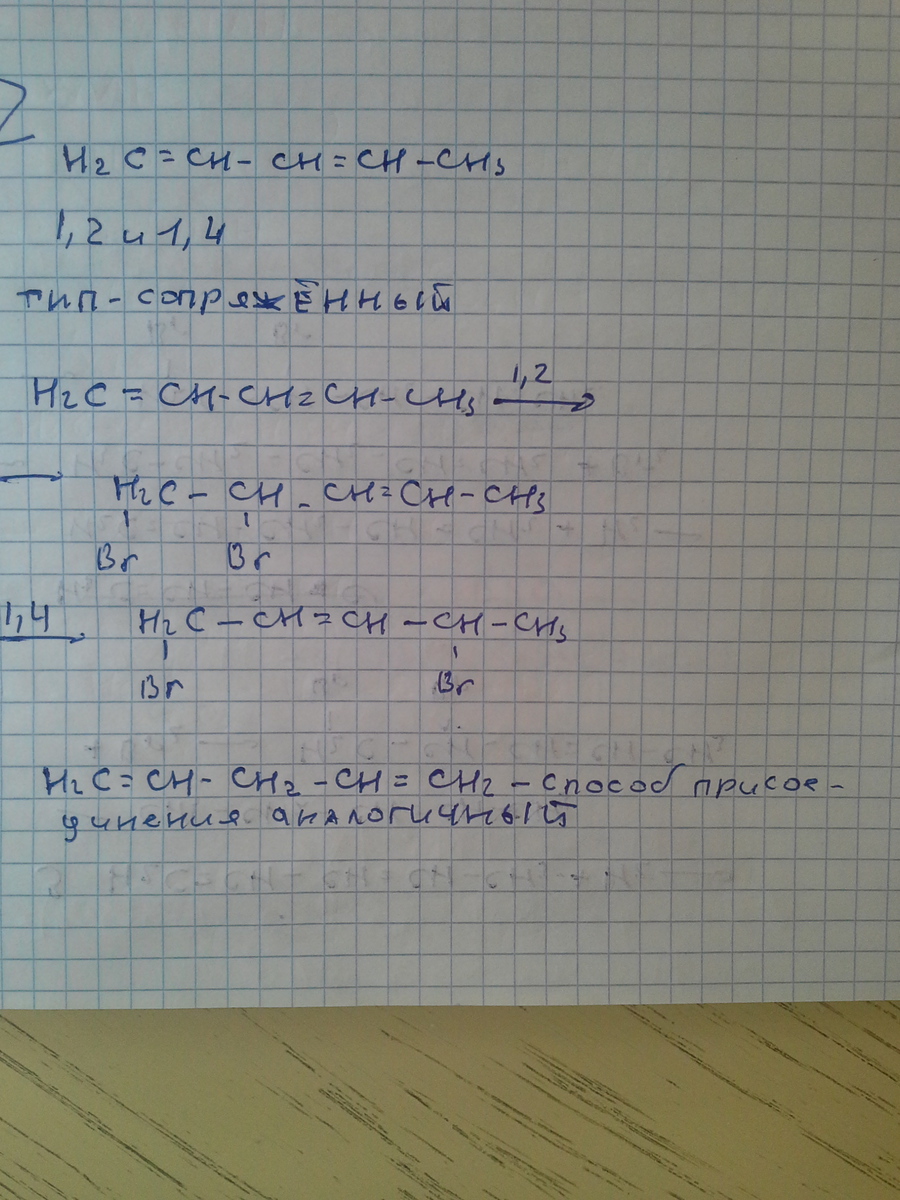 2
H₂C=CH-CH=CH-CH₃
1,2 и 1,4
тип-сопряжённый
H₂C=CH-CH=CH-CH₃ 1,2→
→ H₂C-CH-CH=CH-CH₃
Br Br
1,4→ H₂C-CH=CH-CH-CH₃
Br Br
H₂C=CH-CH₂-CH=CH₂-способ присое-
динения аналогичный